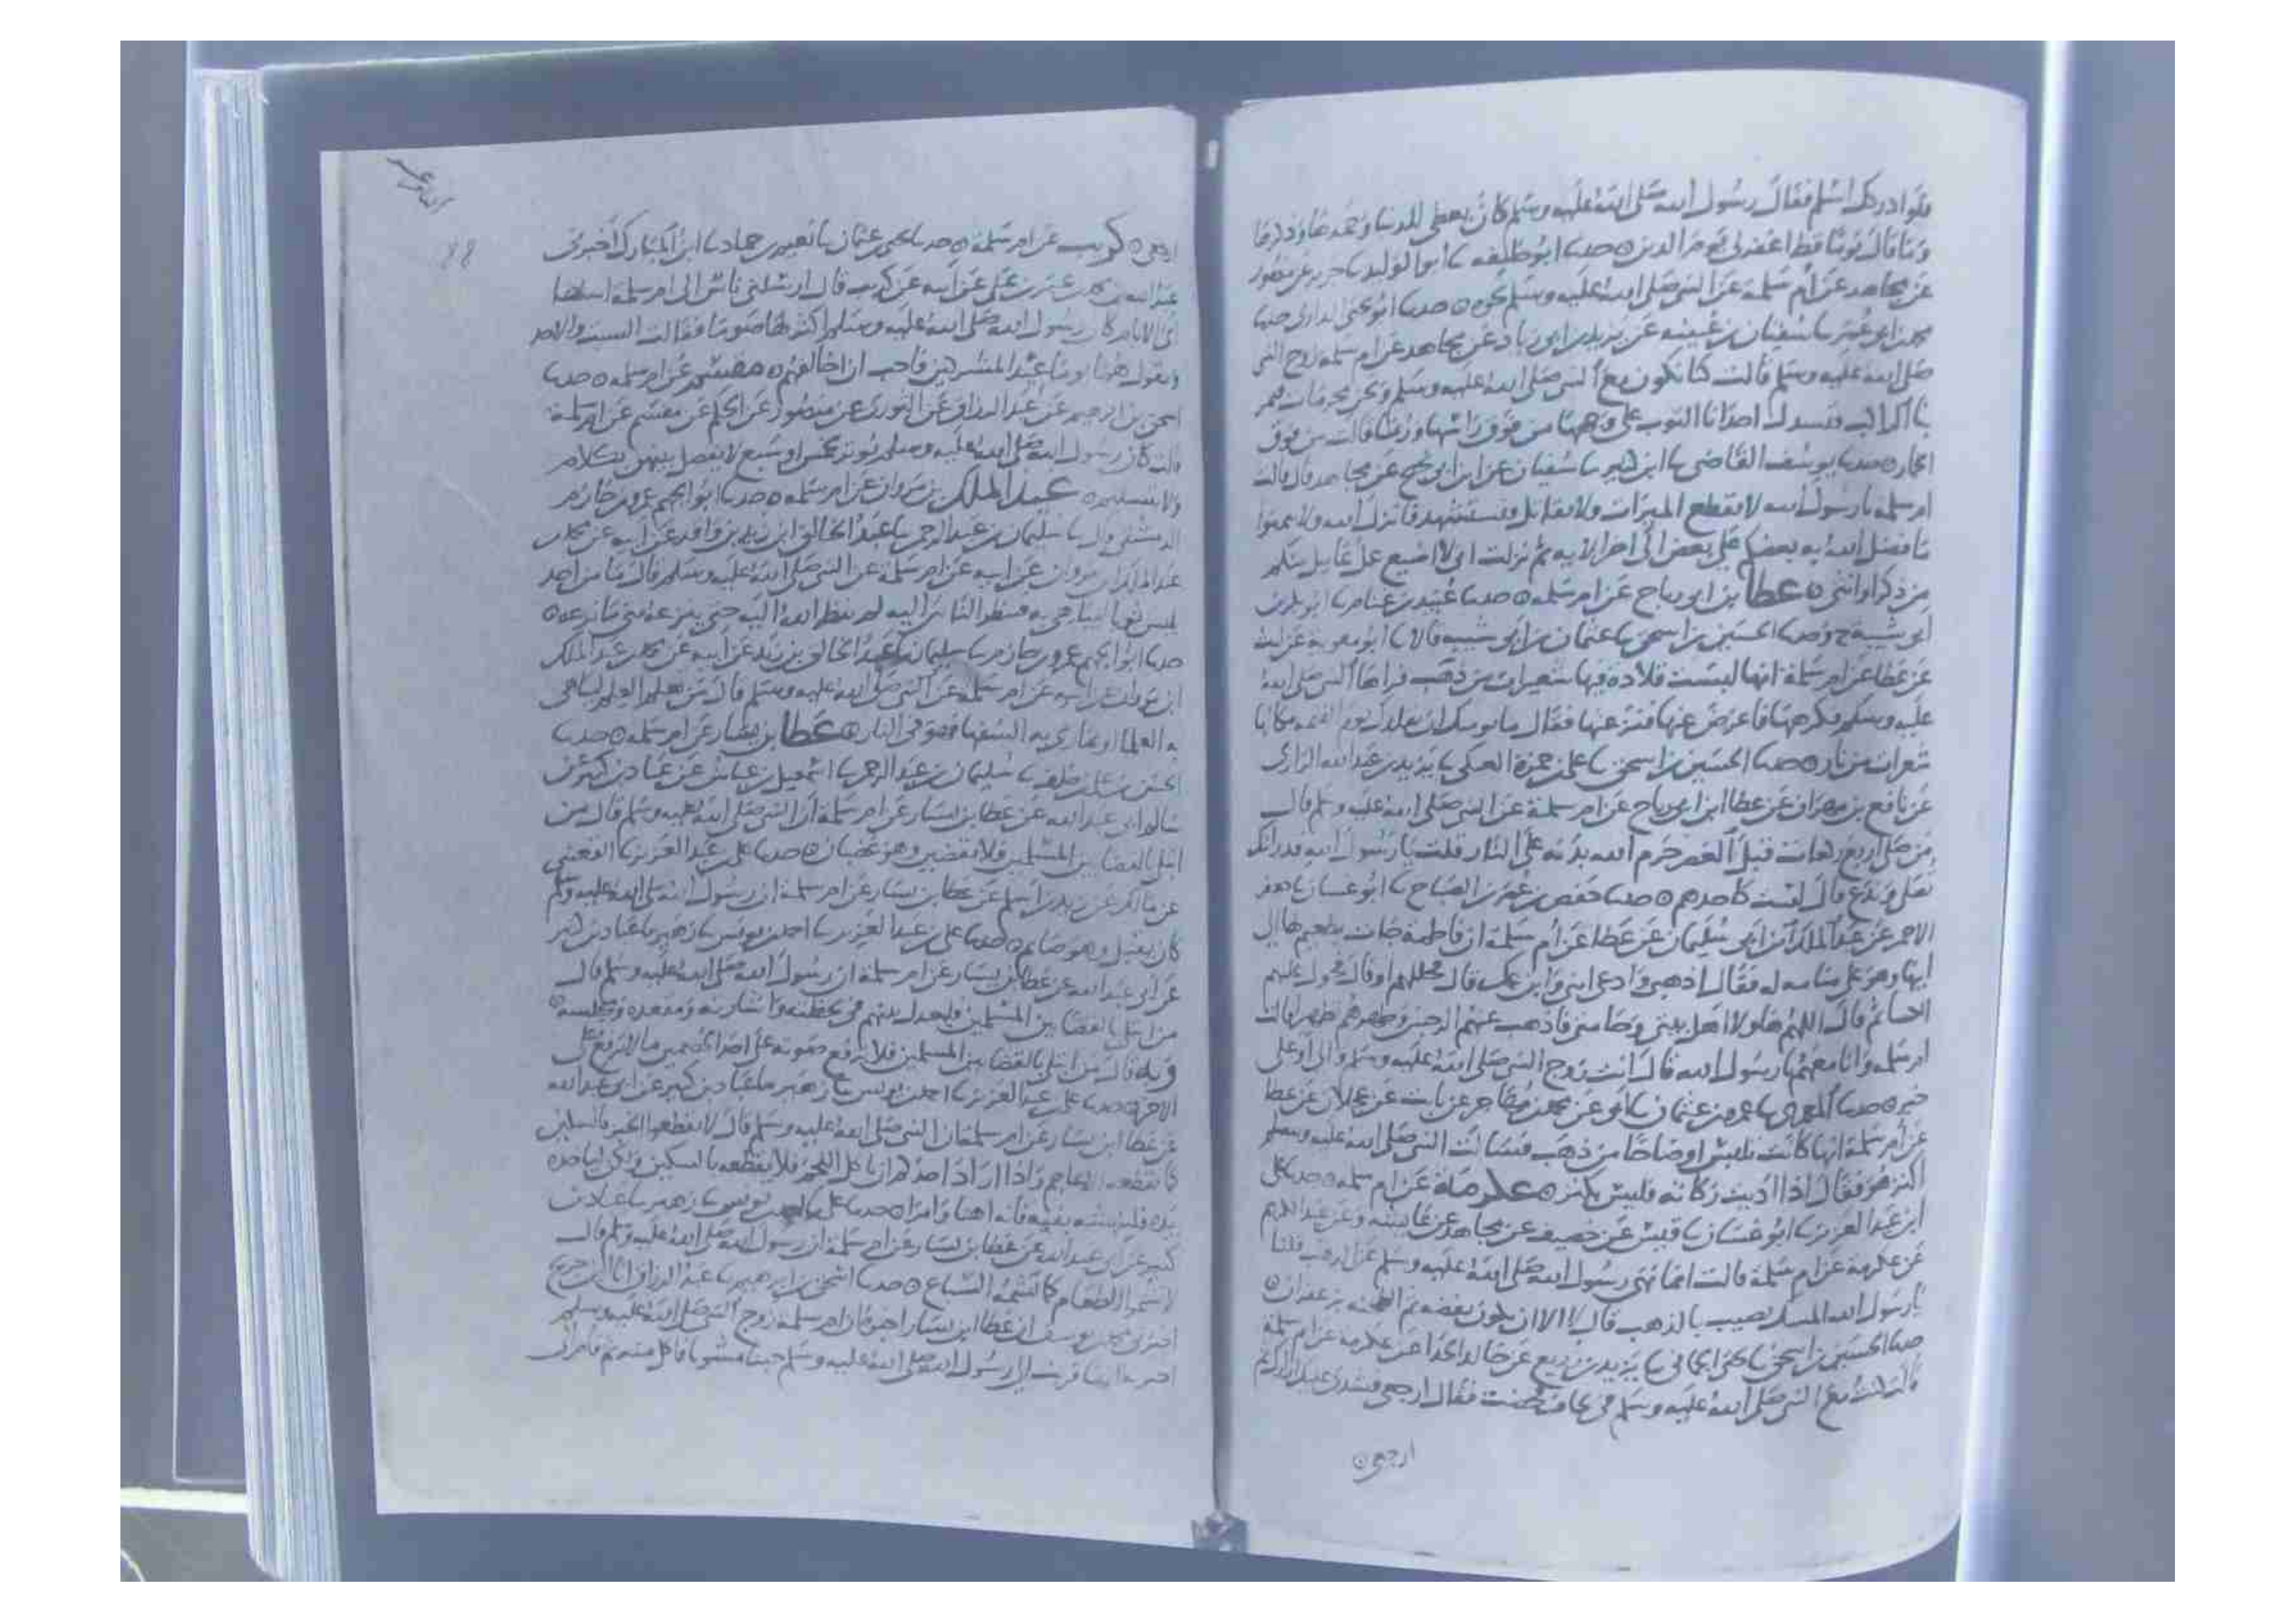 فلو ادركك اسلم فقال رسول الله صلى الله عليه وسلم كان يعطي للدنيا وحمدها وذكرها
وما قال يوما قط اغفر لي يوم الدين ه حدثنا ابو خليفه ثنا ابو الوليد ثنا جرير عن منصور
عن مجاهد عن ام سلمة عن النبي صلى الله عليه وسلم نحوه ه حدثنا ابو يحيى الرازي ثنا
محمد بن ابي عمر ثنا سفيان بن عيينه عن يزيد بن ابي زياد عن مجاهد عن ام سلمه زوج النبي
صلى الله عليه وسلم قالت كنا نكون مع النبي صلى الله عليه وسلم ونحن محرمات فيمر
بنا الراكب فتسدل احدانا الثوب على وجهها من فوق راسها وربما قالت من فوق
الخمار ه حدثنا يوسف القاضي ثنا ابن كثير ثنا سفيان عن ابن ابي نجيح عن مجاهد قال قالت
ام سلمة يا رسول الله لا نقطع الميراث ولا نقاتل فنستشهد فانزل الله ولا تتمنوا
ما فضل الله به بعضكم على بعض الى اخر الايه ثم نزلت اني لا اضيع عمل عامل منكم
من ذكر او انثى ه عطا بن ابي رباح عن ام سلمه ه حدثنا عبيد بن غنام ثنا ابو بكر بن
ابي شيبة ح وحدثنا الحسين بن اسحق ثنا عثمان بن ابي شيبه قالا ثنا ابو معويه عن ليث
عن عطا عن ام سلمة انها لبست قلادة فيها شعيرات من ذهب فراها النبي صلى الله
عليه وسلم فكرهها فاعرض عنها فنزعتها فقال ما يومنك ان يقلدك يوم القيمه مكانها
شعرات من نار ه حدثنا الحسين بن اسحق ثنا علي بن حمزة العكي ثنا يزيد بن عبد الله الرازي
عن نافع بن مهران عن عطا ابن ابي رباح عن ام سلمة عن النبي صلى الله عليه وسلم قال
من صلى اربع ركعات قبل العصر حرم الله بدنه على النار قلت يا رسول الله قد رايتك
تصلي وتدع قال لست كاحدهم ه حدثنا حفص بن عمر بن الصباح ثنا ابو غسان ثنا جعفر
الاحمر عن عبد الملك بن ابي سليمان عن عطا عن ام سلمة ان فاطمة جات بطعيم لها الى
ابيها وهو على منامه له فقال اذهبي وادعي ابني وابن عمك قال فجللهم او قال فحول عليهم
الكسا ثم قال اللهم هاولا اهل بيتي وحامتي فاذهب عنهم الرجس وطهرهم تطهيرا قالت
ام سلمه وانا معهم يا رسول الله قال انت زوج النبي صلى الله عليه وسلم والى او على
خير ه حدثنا المعمري ثنا عمرو بن عثمان ثنا ابي عن محمد بن مهاجر عن ثابت عن عجلان عن عطا
عن ام سلمة انها كانت تلبس اوضاحا من ذهب فسالت النبي صلى الله عليه وسلم
اكنز هو فقال اذا اديت زكاته فليس بكنز ه عكرمة عن ام سلمه ه حدثنا علي
ابن عبد العزيز ثنا ابو غسان ثنا قيس عن خصيف عن مجاهد عن عايشه وعن عبد الكريم
عن عكرمة عن ام سلمة قالت انما نهى رسول الله صلى الله عليه وسلم عن الذهب قلنا
يا رسول الله المسك يصيب بالذهب قال لا الا ان يكون بفضه ثم الطخنه بزعفران ه
حدثنا الحسين بن اسحق ثنا يحيى الحماني ثنا يزيد بن زريع عن خالد الحذا عن عكرمه عن ام سلمة
قالت كنت مع النبي صلى الله عليه وسلم في لحاف فحضت فقال ارجعي فشدي عليك ازارك ثم
ارجعي ه
ارجعي ه كريب عن ام سلمة ه حدثنا يحيى بن عثمان ثنا نعيم بن حماد ثنا ابن المبارك اخبرني
عبد الله بن محمد بن عمر بن علي عن ابيه عن كريب قال ارسلني ناس الى ام سلمة اسالها
اي الايام كان رسول الله صلى الله عليه وسلم اكثر لها صوما فقالت السبت والاحد
ويقول هما يوما عيد المشركين فاحب ان اخالفهم ه مقسم عن ام سلمه ه حدثنا
اسحق بن ابرهيم عن عبد الرزاق عن الثوري عن منصور عن الحكم عن مقسم عن ام سلمة
قالت كان رسول الله صلى الله عليه وسلم يوتر بخمس او سبع لا يفصل بينهن بكلام
ولا بتسليم ه عبد الملك بن مروان عن ام سلمه ه حدثنا ابو الجهم عمرو بن حازم
الدمشقي قال ثنا سليمان بن عبد الرحمن ثنا عبد الخالق ابن زيد بن واقد عن ابيه عن محمد بن
عبد الملك بن مروان عن ابيه عن ام سلمة عن النبي صلى الله عليه وسلم قال ما من احد
يلبس ثوبا ليباهي به فينظر الناس اليه لم ينظر الله اليه حتى ينزعه متى ما نزعه ه
حدثنا ابو الجهم عمرو بن حازم ثنا سليمان ثنا عبد الخالق بن زيد عن ابيه عن محمد بن عبد الملك
ابن مروان عن ابيه عن ام سلمة عن النبي صلى الله عليه وسلم قال من تعلم العلم ليباهي
به العلما او يماري به السفها فهو في النار ه عطا بن يسار عن ام سلمه ه حدثنا
الحسن بن علي بن خلف ثنا سليمان بن عبد الرحمن ثنا اسمعيل بن عياش عن عباد بن كثير عن
سالم ابي عبد الله عن عطا بن يسار عن ام سلمة ان النبي صلى الله عليه وسلم قال من
ابتلي بالقضا بين المسلمين فلا يقضين وهو غضبان ه حدثنا علي بن عبد العزيز ثنا القعنبي
عن مالك عن زيد بن اسلم عن عطا بن يسار عن ام سلمة ان رسول الله صلى الله عليه وسلم
كان يقبل وهو صائم ه حدثنا علي بن عبد العزيز ثنا احمد بن يونس ثنا زهير ثنا عباد بن كثير
عن ابي عبد الله عن عطا بن يسار عن ام سلمة ان رسول الله صلى الله عليه وسلم قال
من ابتلي بالقضا بين المسلمين فليعدل بينهم في لحظه واشارته ومقعده ومجلسه ه
وبه قال من ابتلي بالقضا بين المسلمين فلا يرفع صوته على احد الخصمين ما لا يرفع على
الاخر ه حدثنا علي بن عبد العزيز ثنا احمد بن يونس ثنا زهير ثنا عباد بن كثير عن ابي عبد الله
عن عطا ابن يسار عن ام سلمة ان النبي صلى الله عليه وسلم قال لا تقطعوا الخبز بالسكين
كما تقطعه الاعاجم واذا اراد احدكم ان ياكل اللحم فلا يقطعه بالسكين ولكن لياخذه
بيده فلينهشه بفيه فانه اهنا وامرا ه حدثنا علي ثنا احمد بن يونس ثنا زهير ثنا عباد بن
كثير عن ابي عبد الله عن عطا بن يسار عن ام سلمة ان رسول الله صلى الله عليه وسلم قال
لا تشموا الطعام كما تشمه السباع ه حدثنا اسحق بن ابرهيم ثنا عبد الرزاق انا ابن جريج
اخبرني محمد بن يوسف ان عطا ابن يسار اخبره ان ام سلمة زوج النبي صلى الله عليه وسلم
اخبرته انها قربت الى رسول الله صلى الله عليه وسلم جنبا مشويا فاكل منه ثم قام الى